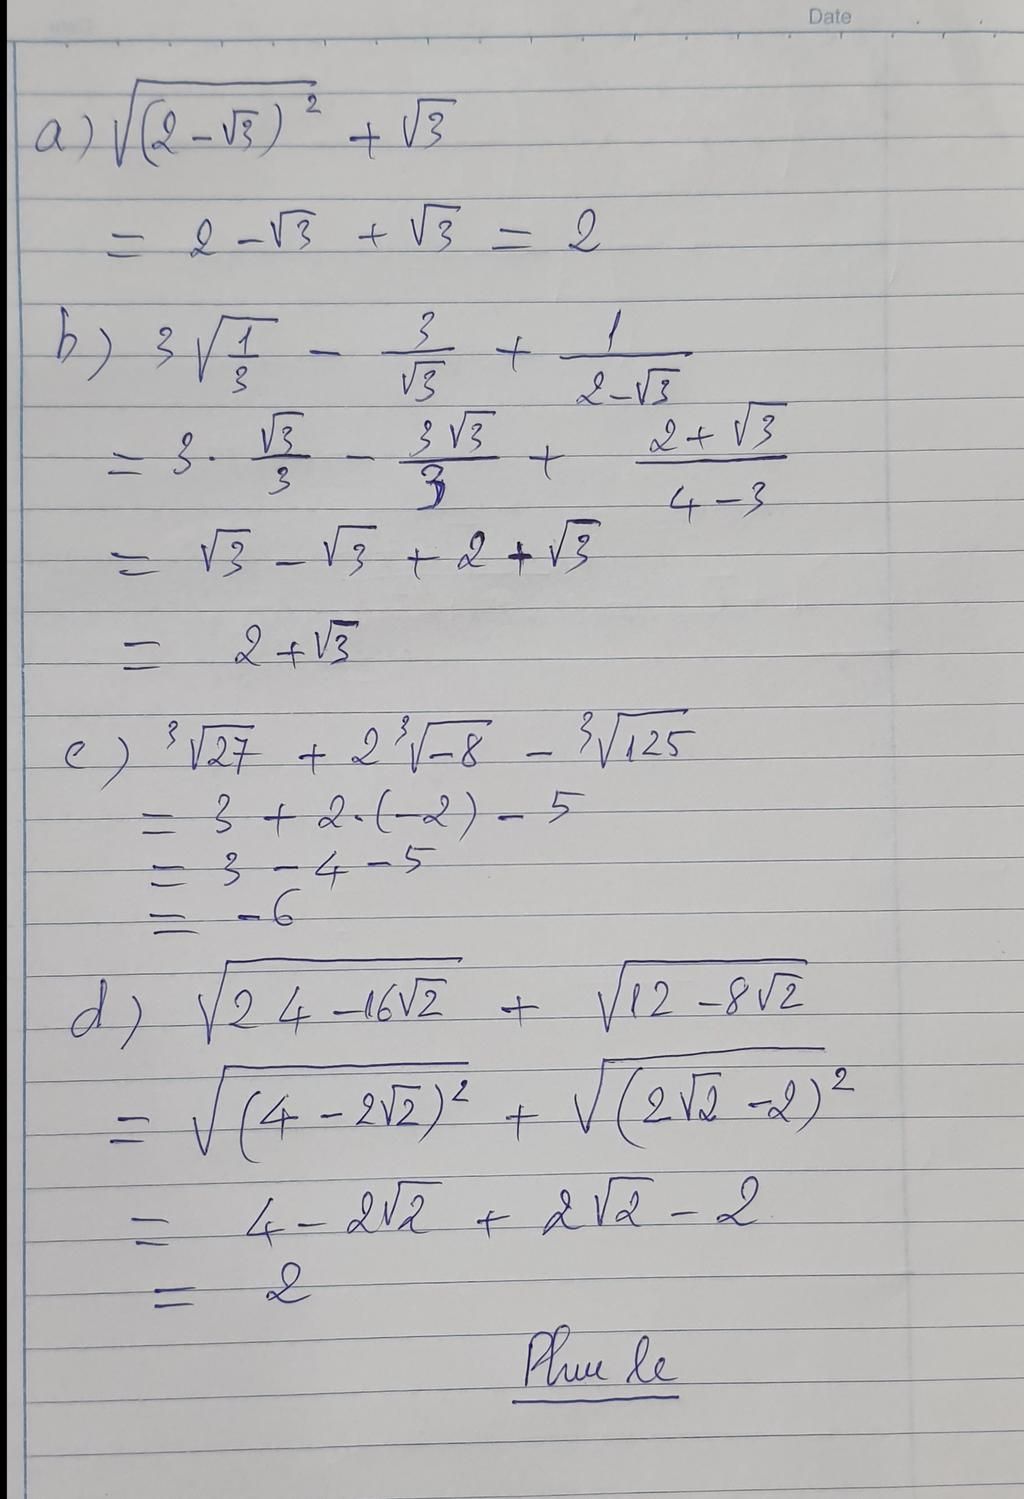 Date
a) √(2-√3)² + √3
= 2-√3 + √3 = 2
b) 3√(1/3) - 3/√3 + 1/(2-√3)
= 3. √3/3 - 3√3/3 + (2+√3)/(4-3)
= √3 - √3 + 2 + √3
= 2+√3
c) ³√27 + 2³√-8 - ³√125
= 3 + 2.(-2) - 5
= 3 - 4 - 5
= -6
d) √(24-16√2) + √(12-8√2)
= √(4-2√2)² + √(2√2-2)²
= 4 - 2√2 + 2√2 - 2
= 2
Phuc le